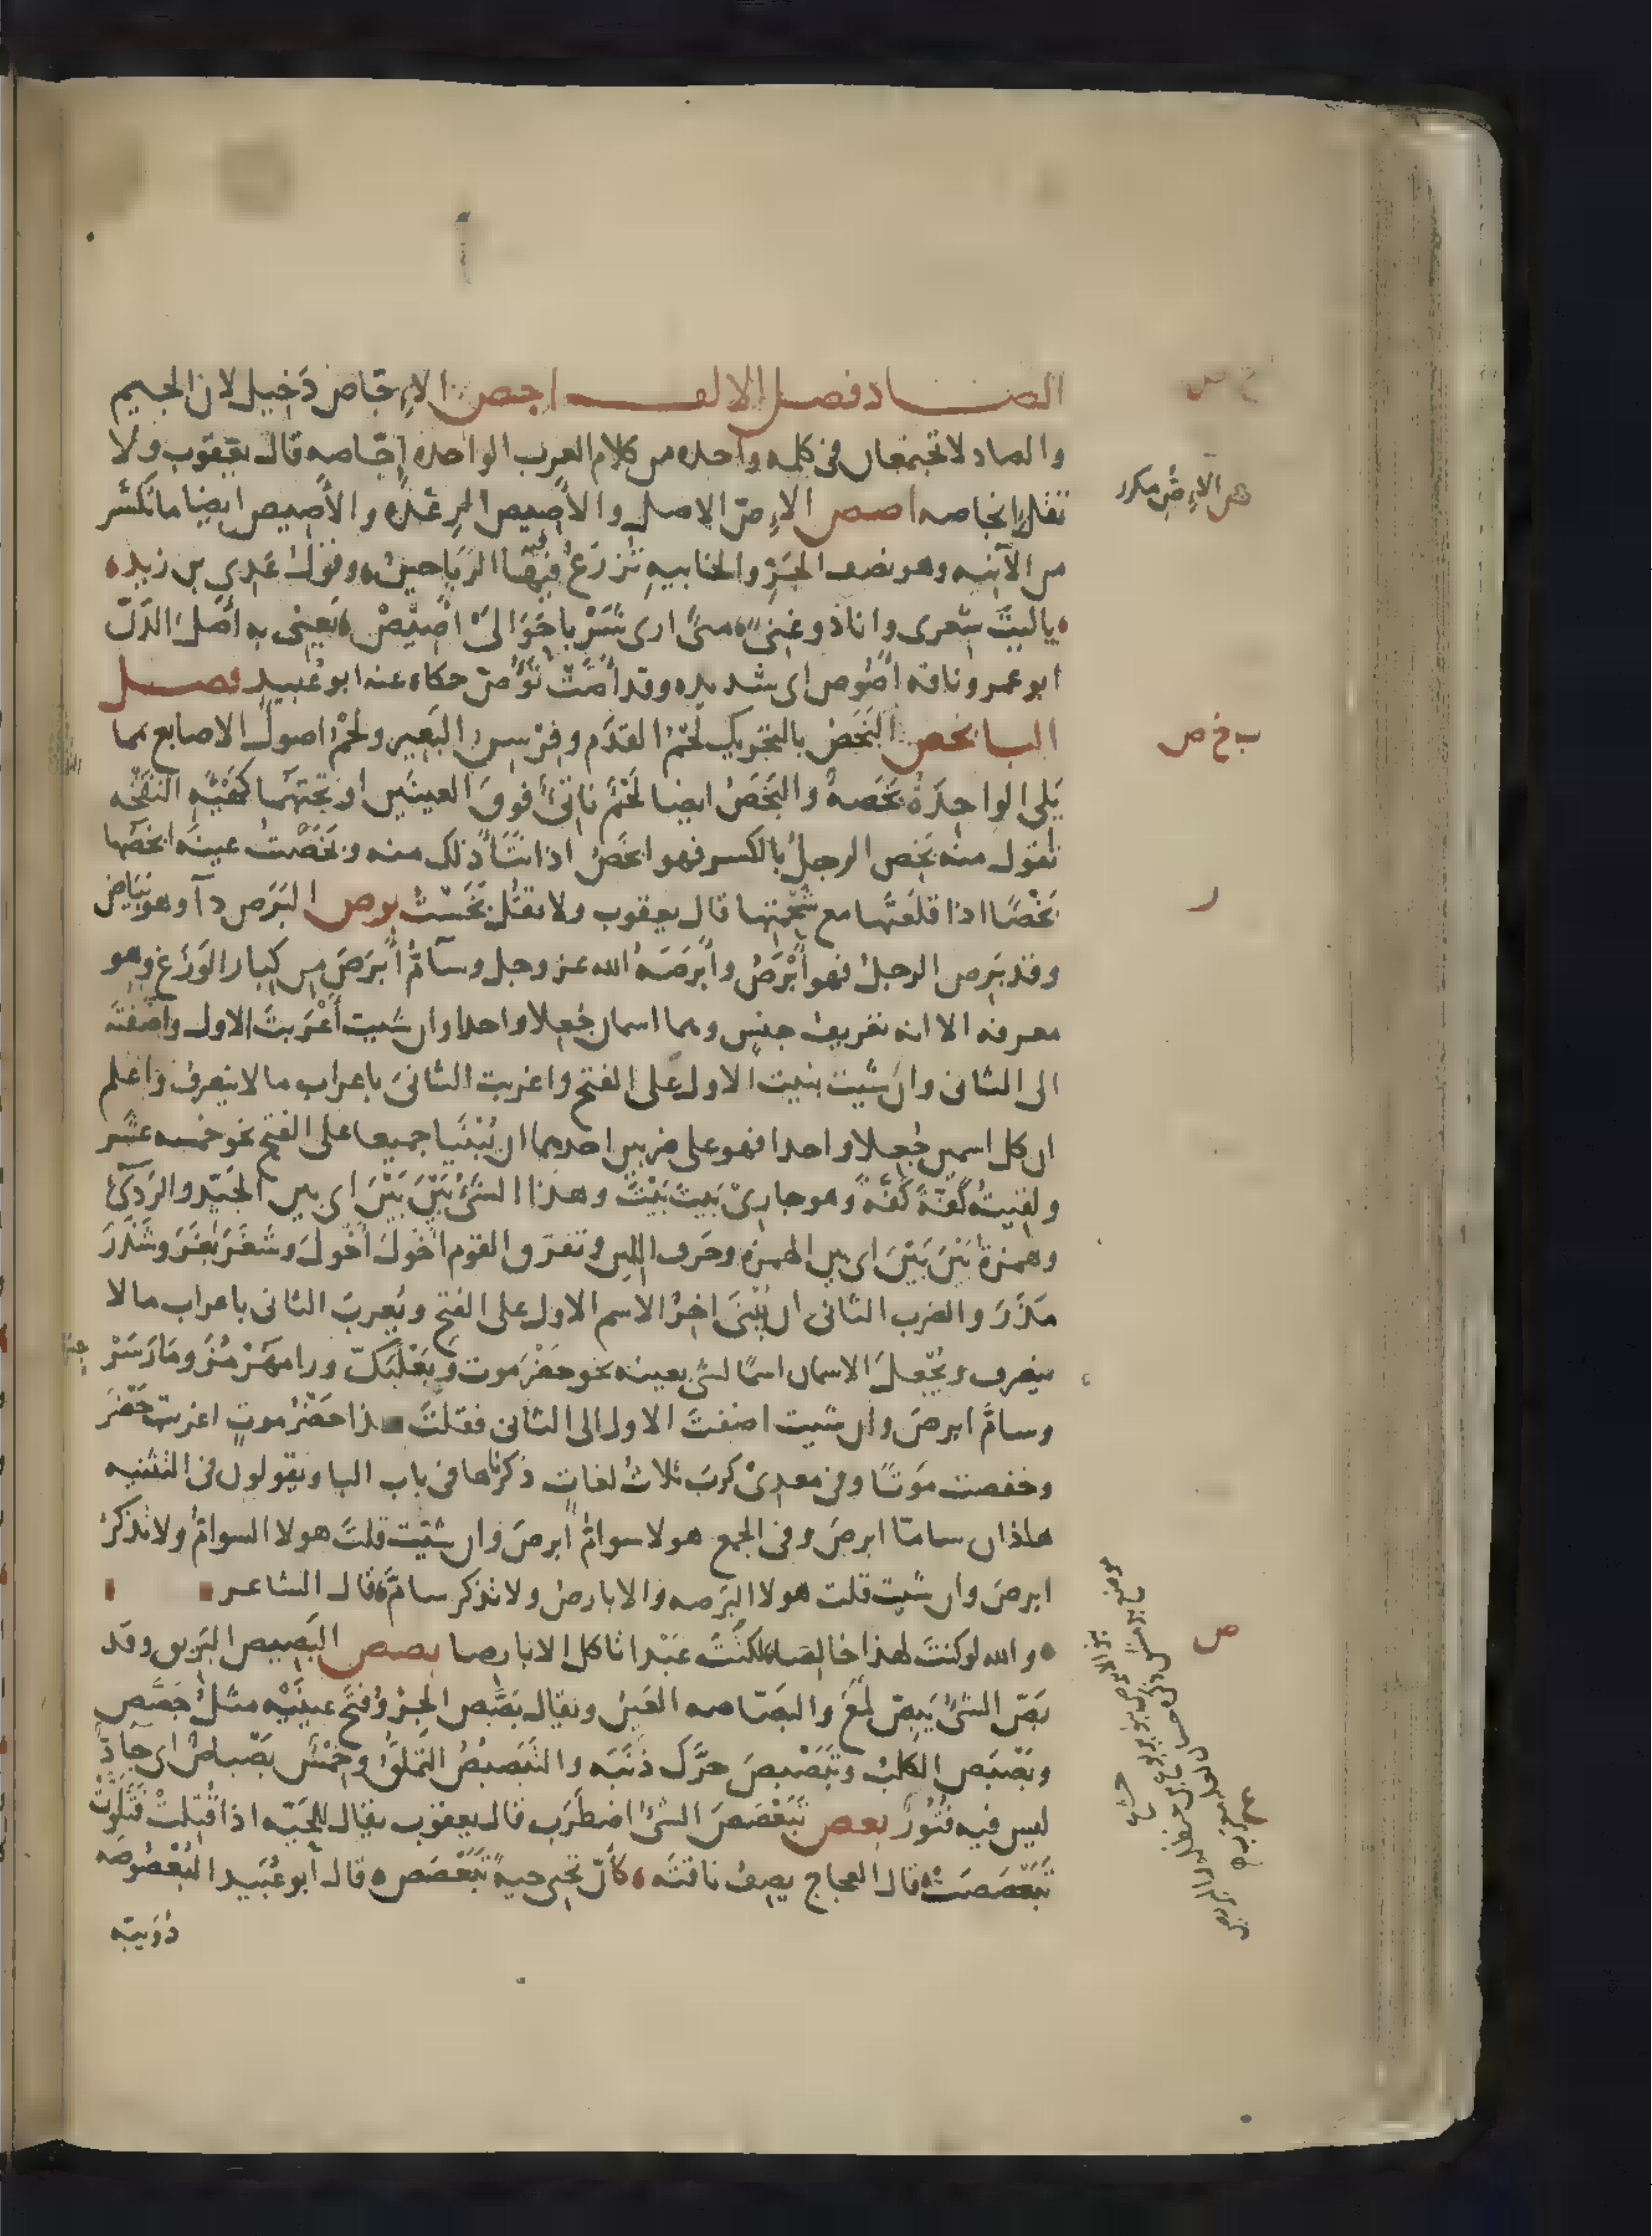 الصاد فصل الالف اجص الاِجّاص دَخيل لان الجيم
والصاد لا تجتمعان فى كلمه واحده من كلام العرب الواحده اِجّاصه قال يعقوب ولا
تقل انجاصه اصص الاِصّ الاصل والأَصيص الرِعْدَه والأصيص ايضا ما تكسّر
من الآنيه وهو نصف الجَرّ والخابيهِ تُزرَعُ فيها الرَيَاحينُ وقول عَدِي بن زيد
ياليتَ شِعرى وانا ذو غِنىً متى ارى شَرْبا حَوَالَىْ اَصِيْصْ يَعنِى به اَصْلَ الدَنّ
ابو عمرو ناقه اَصُوص اى شديده وقد اَصَّتْ تَؤُصّ حكاه عنه ابو عُبيد فصل
البا بخص البَخَصُ بالتحريك لَحْمُ القدَم وفِرْسِنِ البَعِير ولَحْمُ اصولِ الاصابع مما
يَلى الواحِدَةُ بَخَصهٌ والبَخَصُ ايضا لَحْمٌ ناتِئٌ فوقَ العينَين او تحتَهما كهَيْئَهِ النَفْخَه
تقول منه بَخِص الرجلُ بالكسر فهو ابخَصُ اذا نَتَأ ذلك منه وبَخَصْتُ عينَه ابخَصُها
بَخْصًا اذا قلَعتَها مع شَحْمَتِها قال يعقوب ولا تقُل بَخَسْتُ برص البَرَص دآ وهو بَيَاض
وقد بَرِص الرجلُ فهو اَبْرَصُ واَبْرَصَهُ الله عز وجل وسآمُّ اَبْرَصَ مِن كِبار الوَزَغ وهو
معرفه الا انه تعريف جنسٍ وهما اسمان جُعِلا واحدا وان شيت اَعْرَبتَ الاول واَضَفتَه
الى الثانى وان شيت بنيت الاول على الفتح واعربت الثانىَ باعراب ما لا ينصرف واعلم
ان كل اسمين جُعِلا واحدا فهو على ضربين احدهما ان يُبْنَيا جميعا على الفتح نحو خمسه عشر
ولقِيتُه كَفّةَ كَفّةَ وهو جارِىْ بَيتَ بَيْتَ وهذا الشَىْءُ بَيْنَ بَيْنَ اى بين الجَيّد والرَدِئ
وهمزةٌ بَيْنَ بَيْنَ اى بين الهمزه وحَرف اللين وتفَرّق القوم اَخْوَلَ اَخْوَلَ وشَغَرَ بَغَرَ وشَذَرَ
مَذَرَ والضرب الثانى ان يُبْنَى اخِرُ الاسم الاول على الفتح ويُعربَ الثانى باعراب ما لا
ينصرف ويُجْعلَ الاسمان اسمًا لشى بعينه نحو حَضْرَموت وبَعْلَبَكّ ورامَهُرْمُز ومَارَسَرْ
وسامَّ ابرصَ وان شيت اضفتَ الاول الى الثانى فقلتَ هذا حَضْرُ موتٍ اعربت حَضْرَ
وخفضت مَوتًا وفى معدِىْ كرِبَ ثلاثُ لغاتٍ ذكرناها فى باب البا ويقولون فى التثنيه
هاذان سامّا ابرصَ وفى الجمع هولا سوامُّ اَبرصَ وان شيتَ قلتَ هولا السوامُّ ولا تذكرُ
ابرصَ وان شيت قلت هولا البَرَصه والابارصُ ولا تذكر سامَّ قال الشاعر
والله لو كنتَ لهذا خالِصا لكنتَ عَبْدا اَاكل الابارصا بصص البَصِيص البَريق وقد
بَصّ الشئُ يَبِصّ لمَعَ والبَصّاصه العَينُ ويقال بَصَّص الجِرْوُ فتَحَ عينَيْه مثلُ جَصَّص
وبَصْبَص الكلبُ وتَبَصْبصَ حَرَّكَ ذَنَبَه والتَبَصبُصُ التملّقُ وخِمْسٌ بَصْباصٌ اى جادٌّ
ليس فيه فُتُورٌ بعص تَبَعْصَصَ الشئُ اضطَرَب قال يعقوب يقال للحَيّه اذا قُتِلتْ فتَلَوّتْ
تَبَعْصَصَتْ قال العجاج يصِفُ ناقتَه كأنّ تحتى حيةً تَبَعْصَص قال ابو عُبَيد البُعْصُوصَه
دُوَيبّه
هى الاِصّ مكرر
ب خ ص
ر
ص